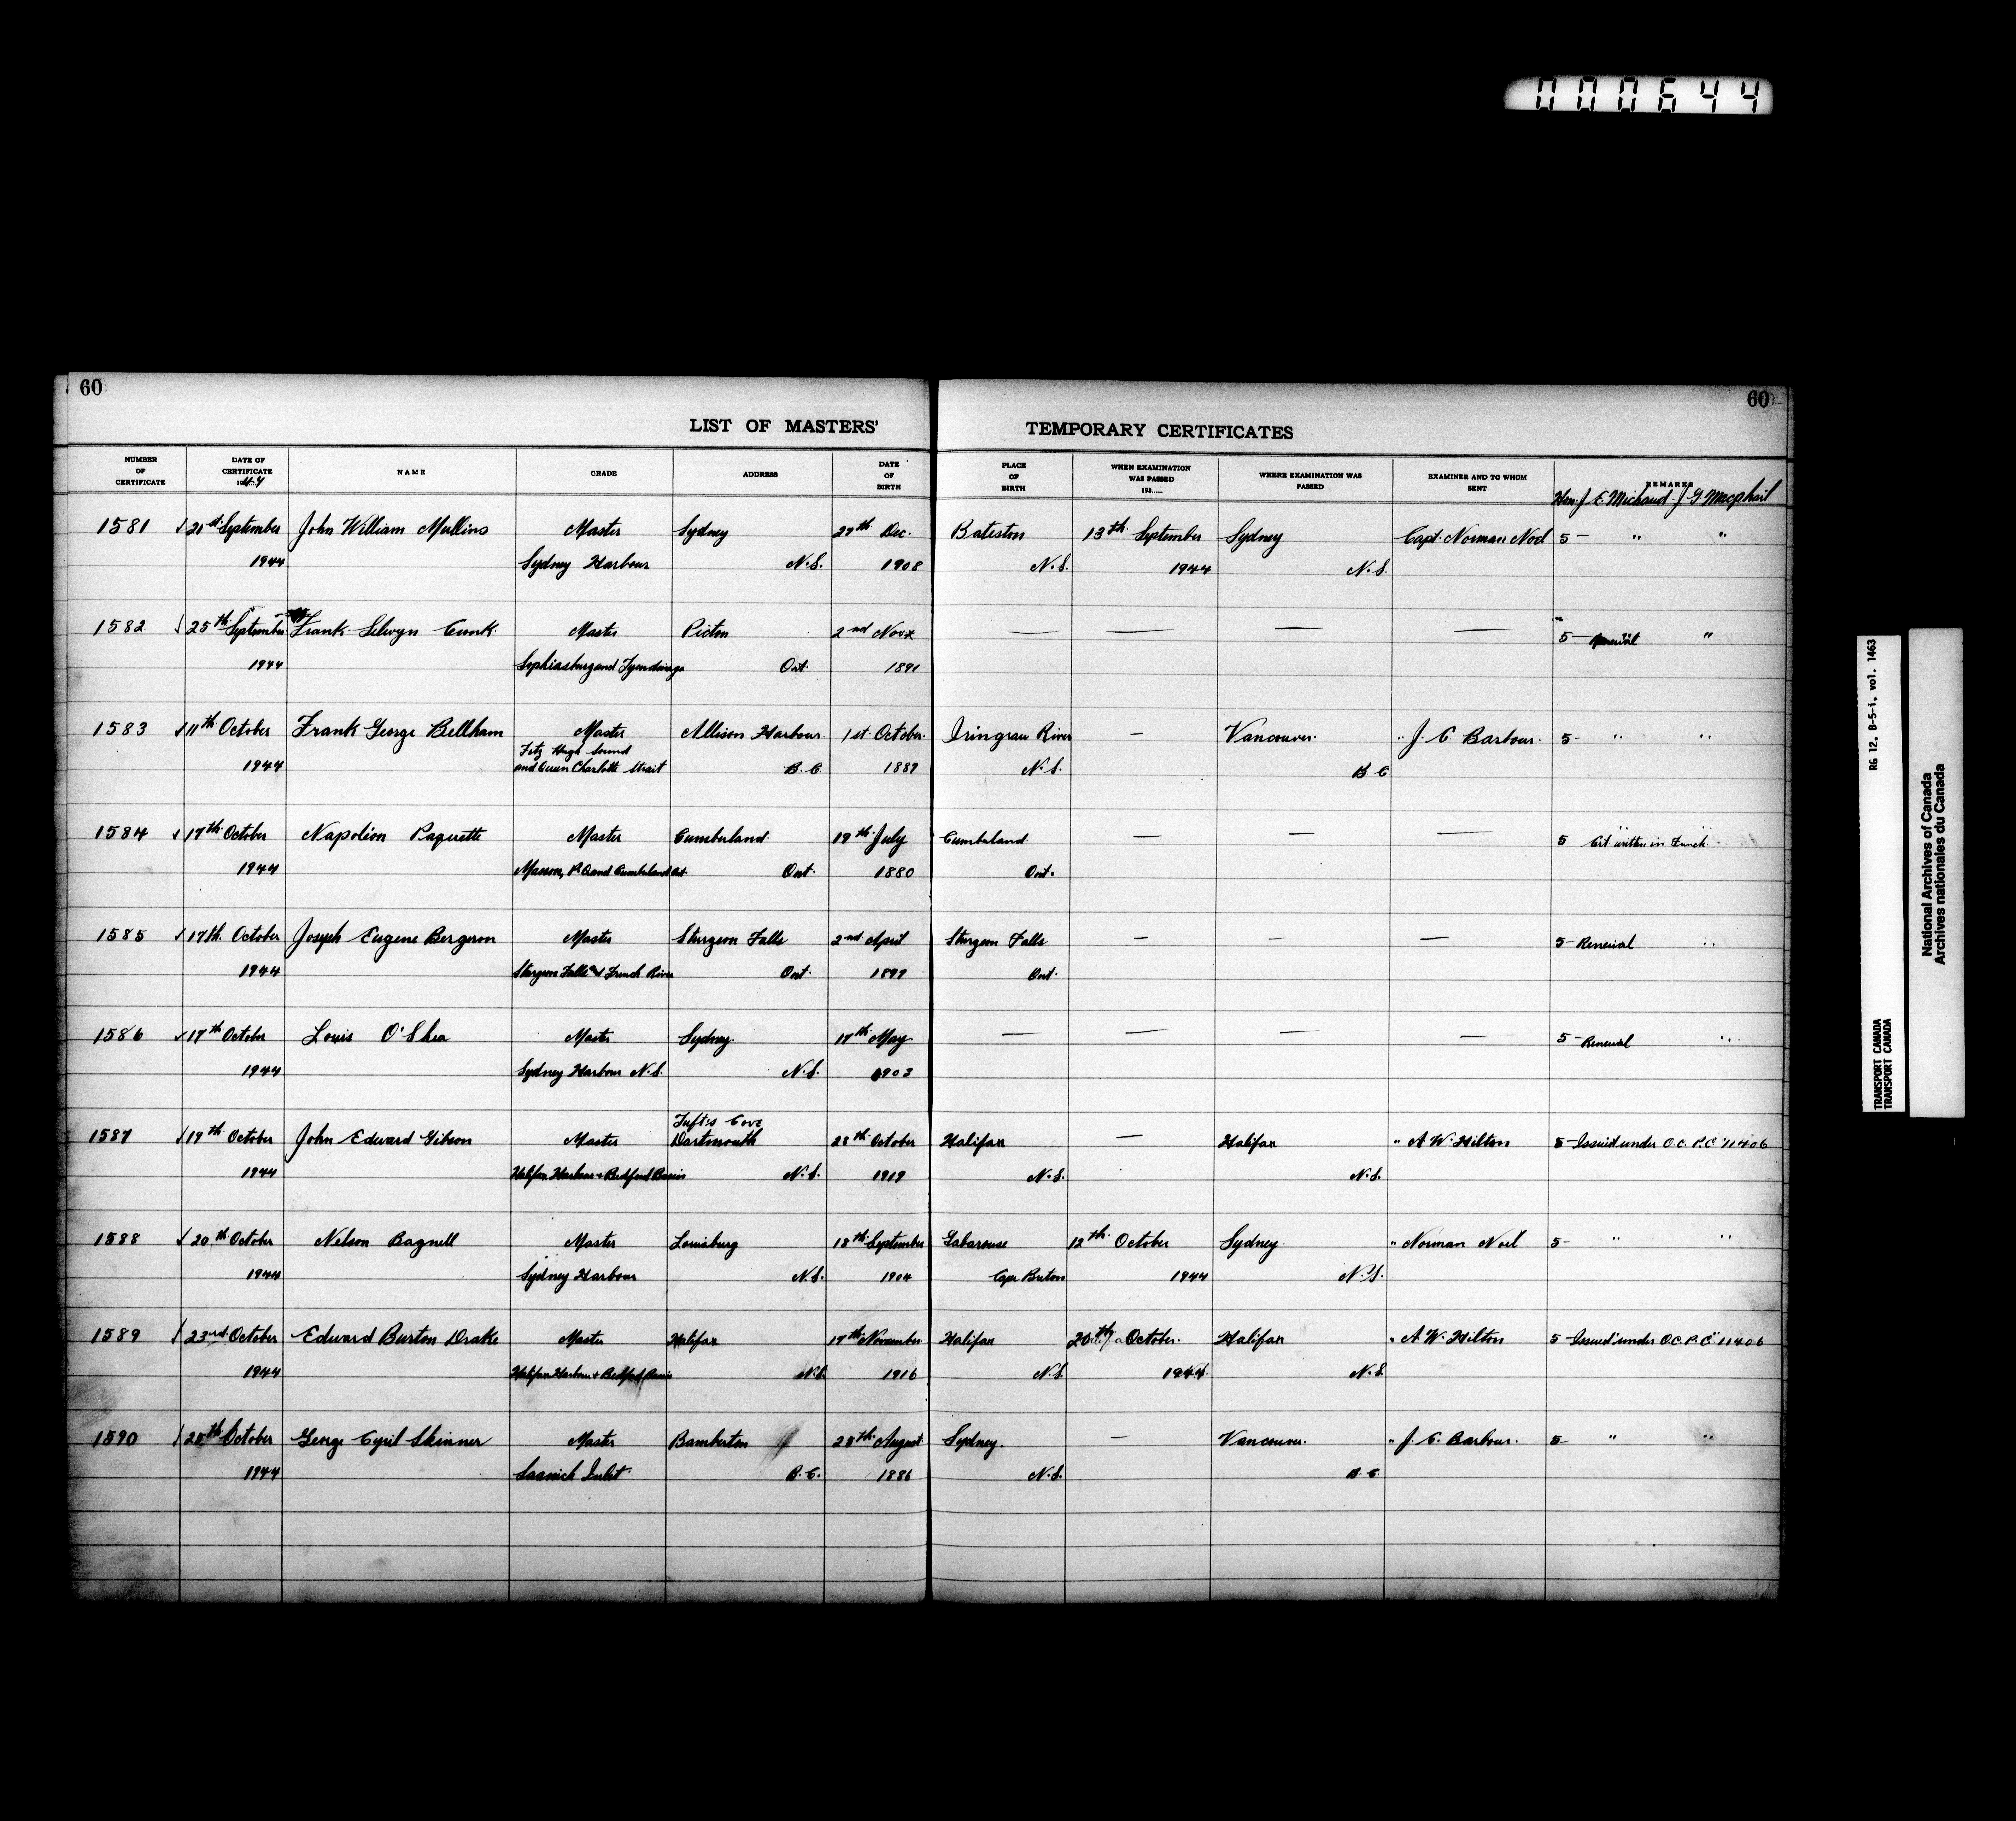 000644
60
60
LIST OF MASTERS' TEMPORARY CERTIFICATES
NUMBER OF CERTIFICATE
DATE OF CERTIFICATE 1944
NAME
GRADE
ADDRESS
DATE OF BIRTH
PLACE OF BIRTH
WHEN EXAMINATION WAS PASSED 193......
WHERE EXAMINATION WAS PASSED
EXAMINER AND TO WHOM SENT
REMARKS
Hon. J. E. Michaud J. G. Macphail
1581 √ 21st September John William Mullins Master Sydney 29th Dec. Bateston 13th September Sydney Capt. Norman Noel 5 - " "
1944 Sydney Harbour N.S. 1908 N.S. 1944 N.S.
1582 √ 25th September Frank Selwyn Cronk Master Picton 2nd Nov. — — — — 5 - Renewal "
1944 Sophiasburg and Tyendinaga Ont. 1891
1583 √ 11th October Frank George Bellham Master Allison Harbour 1st October — Vancouver " J. C. Barbour 5 - " "
Fitz Hugh Sound
1944 and Queen Charlotte Strait B.C. 1889 N.S. B.C.
1584 √ 17th October Napoléon Paquette Master Cumberland 19th July Cumberland — — — 5 Crt. written in French
1944 Masson, P.Q. and Cumberland Ont. Ont. 1880 Ont.
1585 √ 17th October Joseph Eugene Bergeron Master Sturgeon Falls 2nd April Sturgeon Falls — — — 5 - Renewal "
1944 Sturgeon Falls & French River Ont. 1899 Ont.
1586 √ 17th October Louis O'Shea Master Sydney 17th May — — — — 5 - Renewal "
1944 Sydney Harbour N.S. N.S. 1903
Tuft's Cove
1587 √ 19th October John Edward Gibson Master Dartmouth 28th October Halifax — Halifax " A. W. Hilton 5 - Issued under O.C. P.C. 11406
1944 Halifax Harbour & Bedford Basin N.S. 1919 N.S. N.S.
1588 √ 20th October Nelson Bagnell Master Louisburg 18th September Gabarouse 12th October Sydney " Norman Noel 5 - " "
1944 Sydney Harbour N.S. 1904 Cape Breton 1944 N.S.
1589 √ 23rd October Edward Burton Drake Master Halifax 17th November Halifax 20th October Halifax " A. W. Hilton 5 - Issued under O.C. P.C. 11406
1944 Halifax Harbour & Bedford Basin N.S. 1916 N.S. 1944 N.S.
1590 √ October George Cyril Skinner Master Bamberton 28th August Sydney — Vancouver " J. C. Barbour 5 - " "
1944 Saanich Inlet B.C. 1886 N.S. B.C.
RG 12, B-5-i, vol. 1463
TRANSPORT CANADA
TRANSPORT CANADA
National Archives of Canada
Archives nationales du Canada